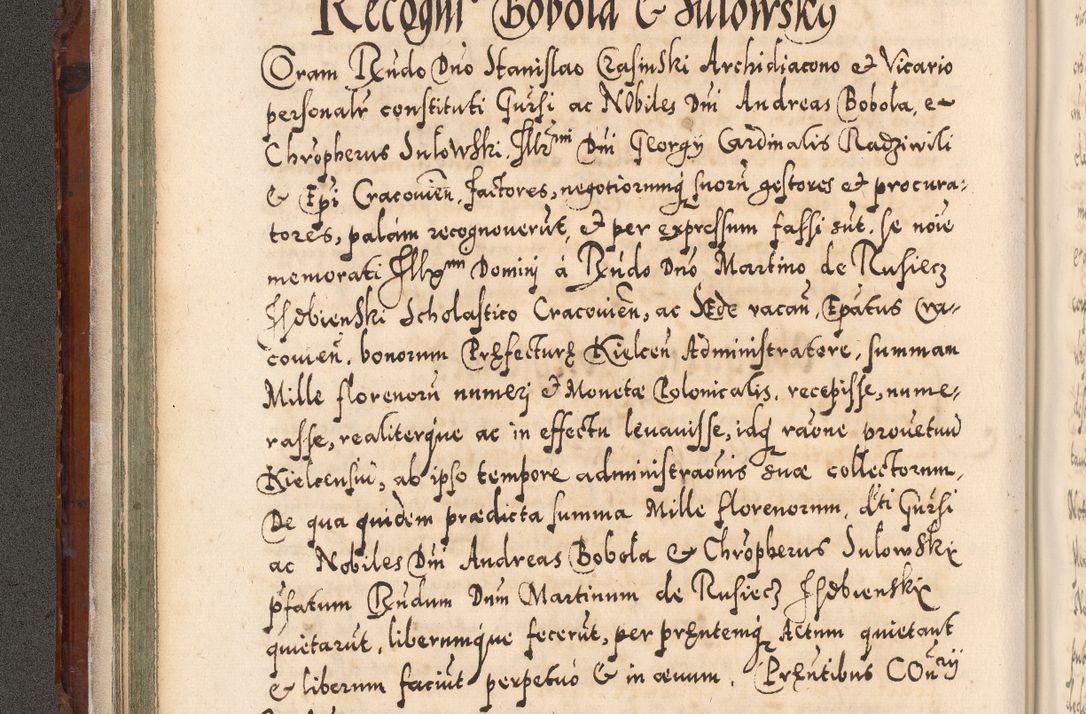 Recogni Bobola & Sulowsky
Coram Rndo Dno Stanislao Crasinski Archidiacono et Vicario
personalr constituti Gnrsi ac Nobiles Dni Andreas Bobola, e
Chropherus Sulowski, Illrmi Dni Georgy Cardinalis Radziwili
& Epi Cracovien, factores, negotiorumq suoru gestores et procura-
tores, palam recognoverut, et per expressum fassi sut, se noie
memorati Illxmi Domini á Rndo Dno Martino de Rusiecz
Izdbienski Scholastico Cracovien, ac Sede vacan, Epatus Cra-
covien, bonorum Præfecturæ Kielcen Administratore, summam
Mille florenoru numerj et Monetæ Polonicalis, recepisse, nume-
rasse, realiterque ac in effectu levavisse, idq raone provetuu
Kielcensiu, ab ipso tempore administraonis suæ collectorum,
De qua quidem prædicta summa Mille florenorum, dti Gnrsi
ac Nobiles Dni Andreas Bobola & Chropherus Sulowski
pfatum Rndum Dnm Martinum de Rusiecz Izdbienski
quietarut, liberumque fecerut, per prætemq Actum quietant
& liberum faciut perpetuo & in ævum. Præntibus